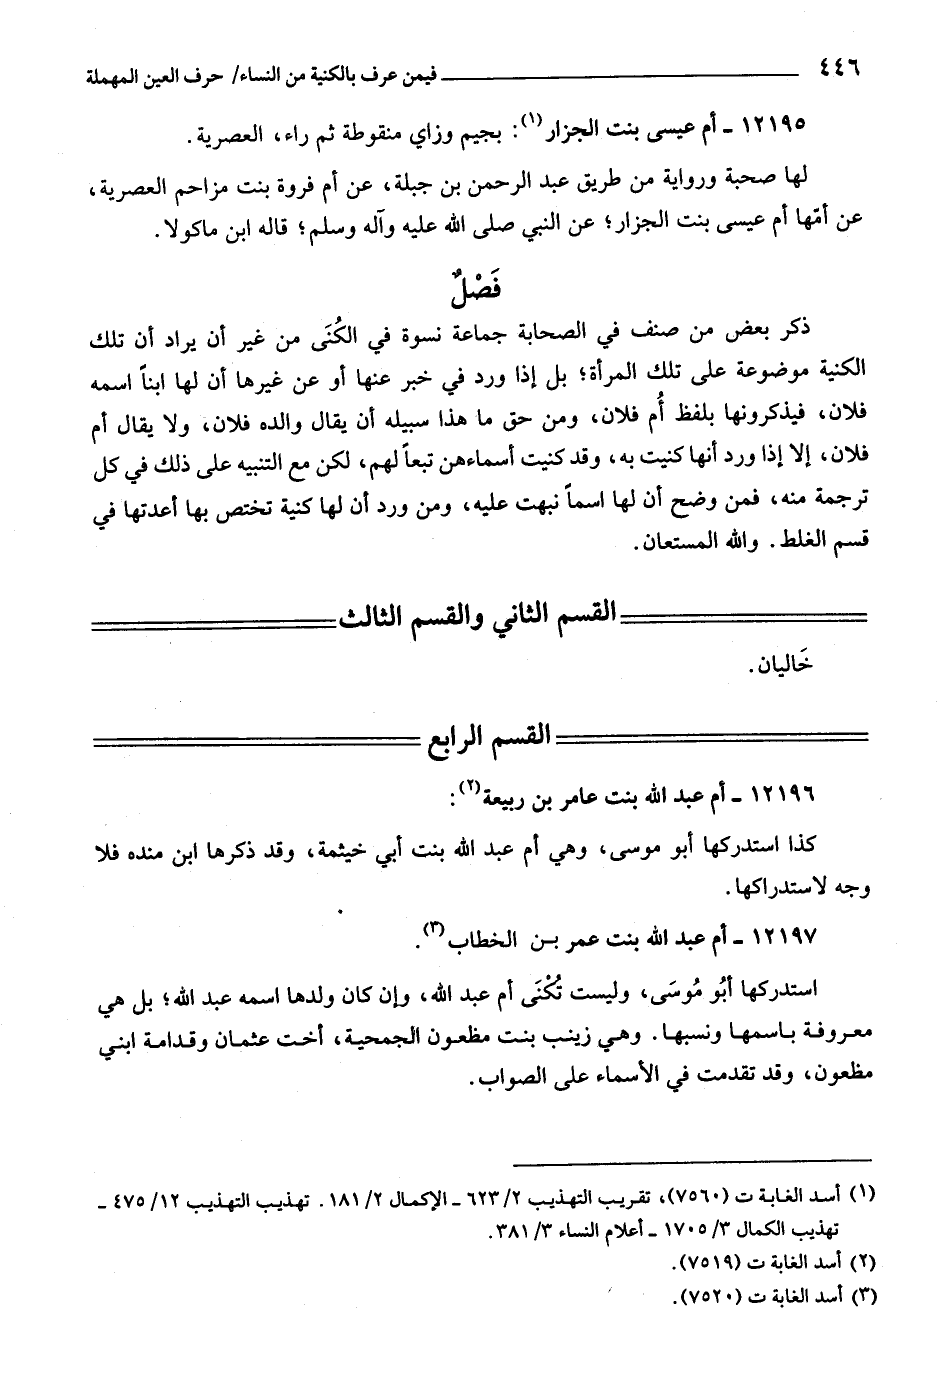 ٤٤٦ فيمن عرف بالكنية من النساء/ حرف العين المهملة
١٢١٩٥ ـ أم عيسى بنت الجزار(١): بجيم وزاي منقوطة ثم راء، العصرية.
لها صحبة ورواية من طريق عبد الرحمن بن جبلة، عن أم فروة بنت مزاحم العصرية،
عن أمّها أم عيسى بنت الجزار؛ عن النبي صلى الله عليه وآله وسلم؛ قاله ابن ماكولا.
فَصْلٌ
ذكر بعض من صنف في الصحابة جماعة نسوة في الكُنَى من غير أن يراد أن تلك
الكنية موضوعة على تلك المرأة؛ بل إذا ورد في خبر عنها أو عن غيرها أن لها ابناً اسمه
فلان، فيذكرونها بلفظ أُم فلان، ومن حق ما هذا سبيله أن يقال والده فلان، ولا يقال أم
فلان، إلا إذا ورد أنها كنيت به، وقد كنيت أسماءهن تبعاً لهم، لكن مع التنبيه على ذلك في كل
ترجمة منه، فمن وضح أن لها اسماً نبهت عليه، ومن ورد أن لها كنية تختص بها أعدتها في
قسم الغلط. والله المستعان.
القسم الثاني والقسم الثالث
خَاليان.
القسم الرابع
١٢١٩٦ ـ أم عبد الله بنت عامر بن ربيعة(٢):
كذا استدركها أبو موسى، وهي أم عبد الله بنت أبي خيثمة، وقد ذكرها ابن منده فلا
وجه لاستدراكها.
١٢١٩٧ ـ أم عبد الله بنت عمر بـن الخطاب(٣).
استدركها أبُو مُوسَى، وليست تُكْنَى أم عبد الله، وإن كان ولدها اسمه عبد الله؛ بل هي
معروفة باسمها ونسبها. وهي زينب بنت مظعون الجمحية، أخت عثمان وقدامة ابني
مظعون، وقد تقدمت في الأسماء على الصواب.
(١) أسد الغابة ت (٧٥٦٠)، تقريب التهذيب ٢/ ٦٢٣ ـ الإكمال ٢/ ١٨١. تهذيب التهذيب ١٢/ ٤٧٥ ـ
تهذيب الكمال ٣/ ١٧٠٥ ـ أعلام النساء ٣/ ٣٨١.
(٢) أسد الغابة ت (٧٥١٩).
(٣) أسد الغابة ت (٧٥٢٠).